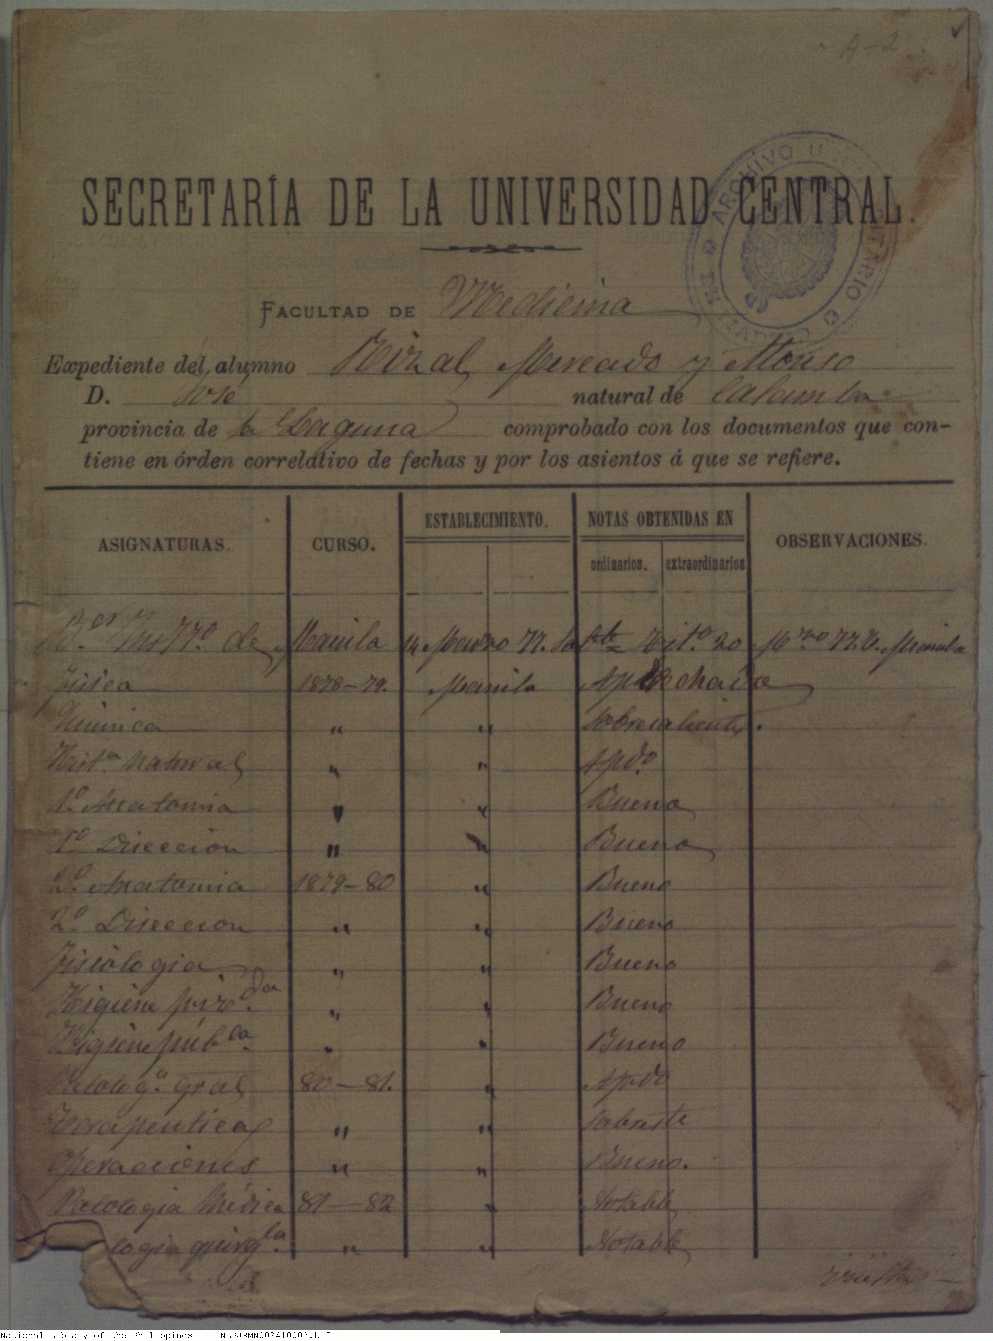 A-2
SECRETARÍA DE LA UNIVERSIDAD CENTRAL.
ARCHIVO UNIVERSITARIO
FACULTAD DE Medicina
Expediente del alumno Rizal Mercado y Alonso
D. José natural de Calamba
provincia de la Laguna comprobado con los documentos que con-
tiene en órden correlativo de fechas y por los asientos á que se refiere.
ASIGNATURAS. CURSO. ESTABLECIMIENTO. NOTAS OBTENIDAS EN OBSERVACIONES.
ordinarios. extraordinarios
de Manila 14 Marzo 77. 20 77. Manila
Física 1878-79. Manila Aprovechado
Química " " Sobresaliente.
Hist.ª natural " " Apdo.
1º Anatomia " " Bueno
1º Diseccion " " Bueno
2º Anatomia 1879-80 " Bueno
2º Diseccion " " Bueno
Fisiologia " " Bueno
Higiene priv.da " " Bueno
Higiene púb.ca " " Bueno
Patolog.ª gral 80-81. " Apdo
Terapeutica " " Sobreste
Operaciones " " Bueno.
Patologia Médica 81-82 " Notable
logia quirg.ca " " Notable
National Library of the Philippines